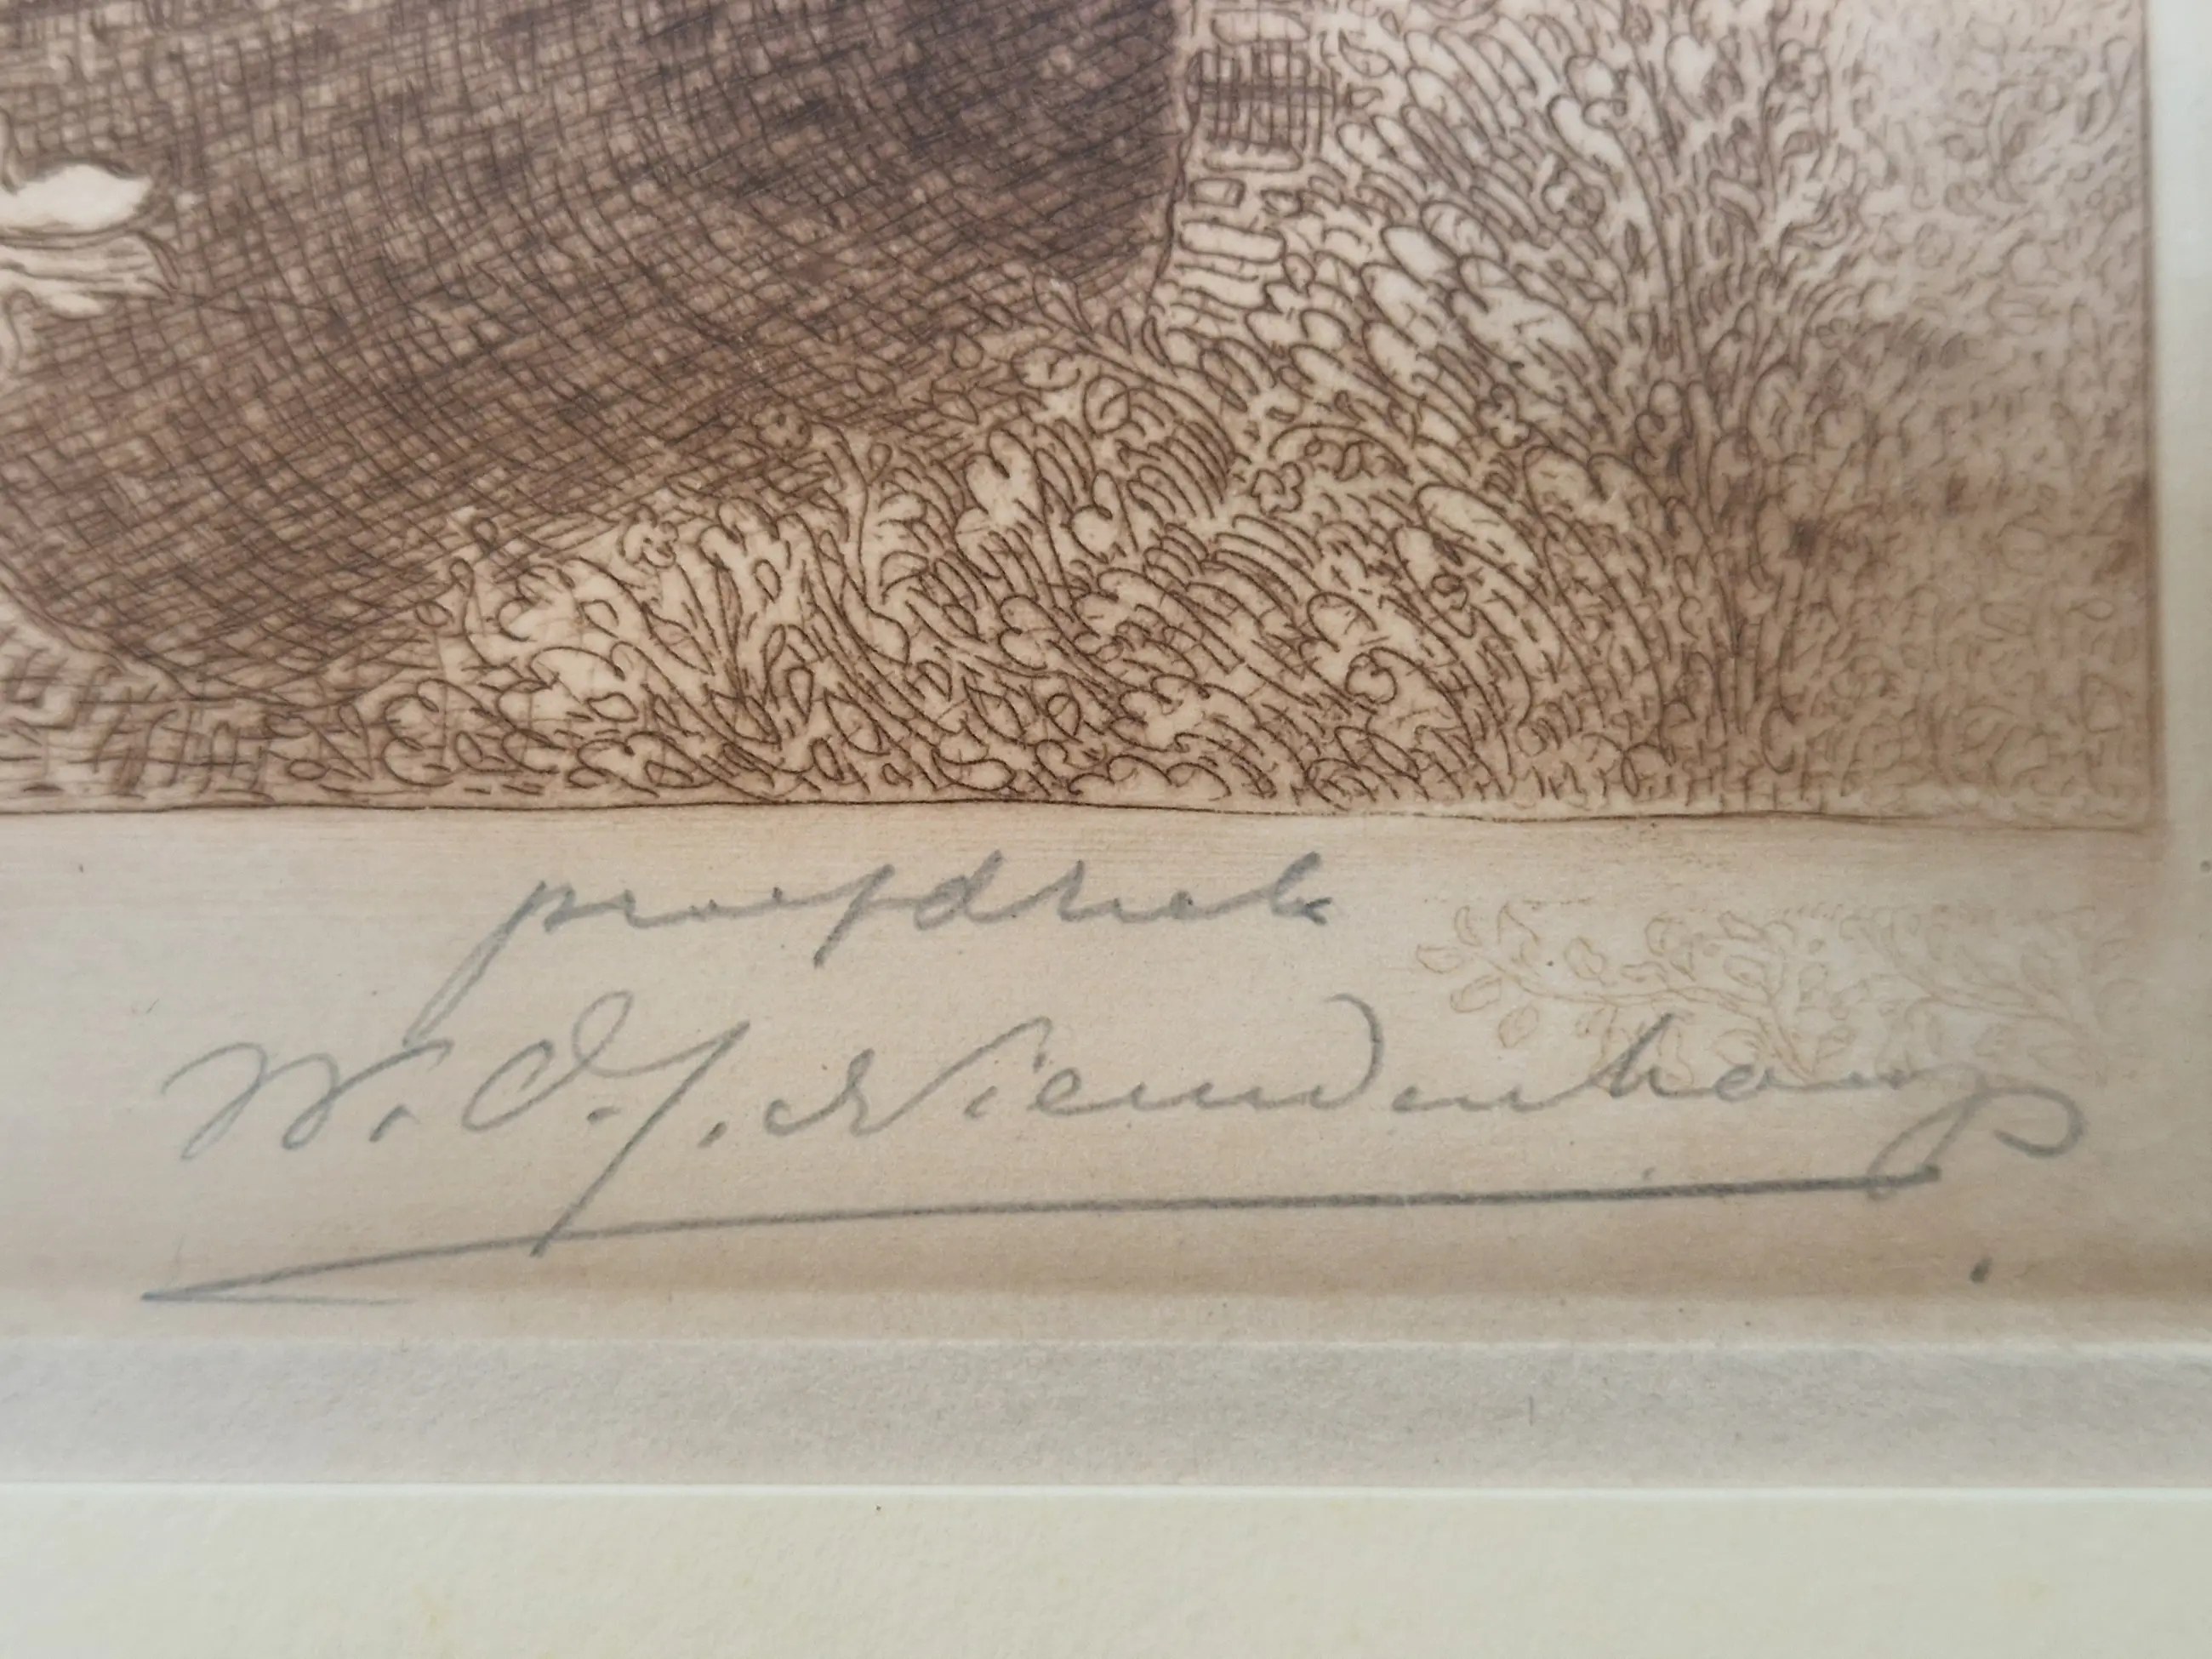 proefdruk
W.O.J. Nieuwenkamp